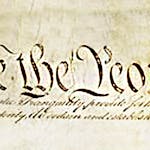 e The Peo
Tranquility, provide for
ordain and establish